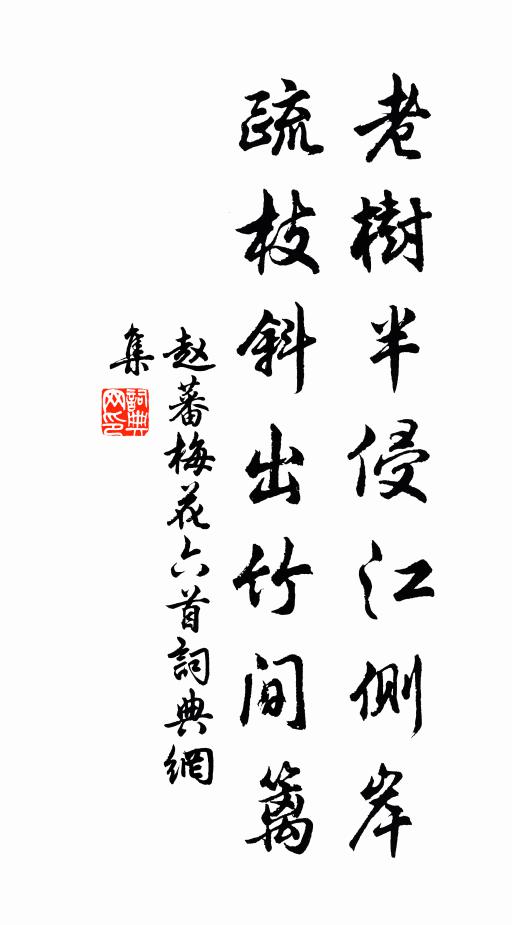 老樹半侵江側岸
疏枝斜出竹间篱
赵蕃梅花六首詞典網
集
詞典
网印